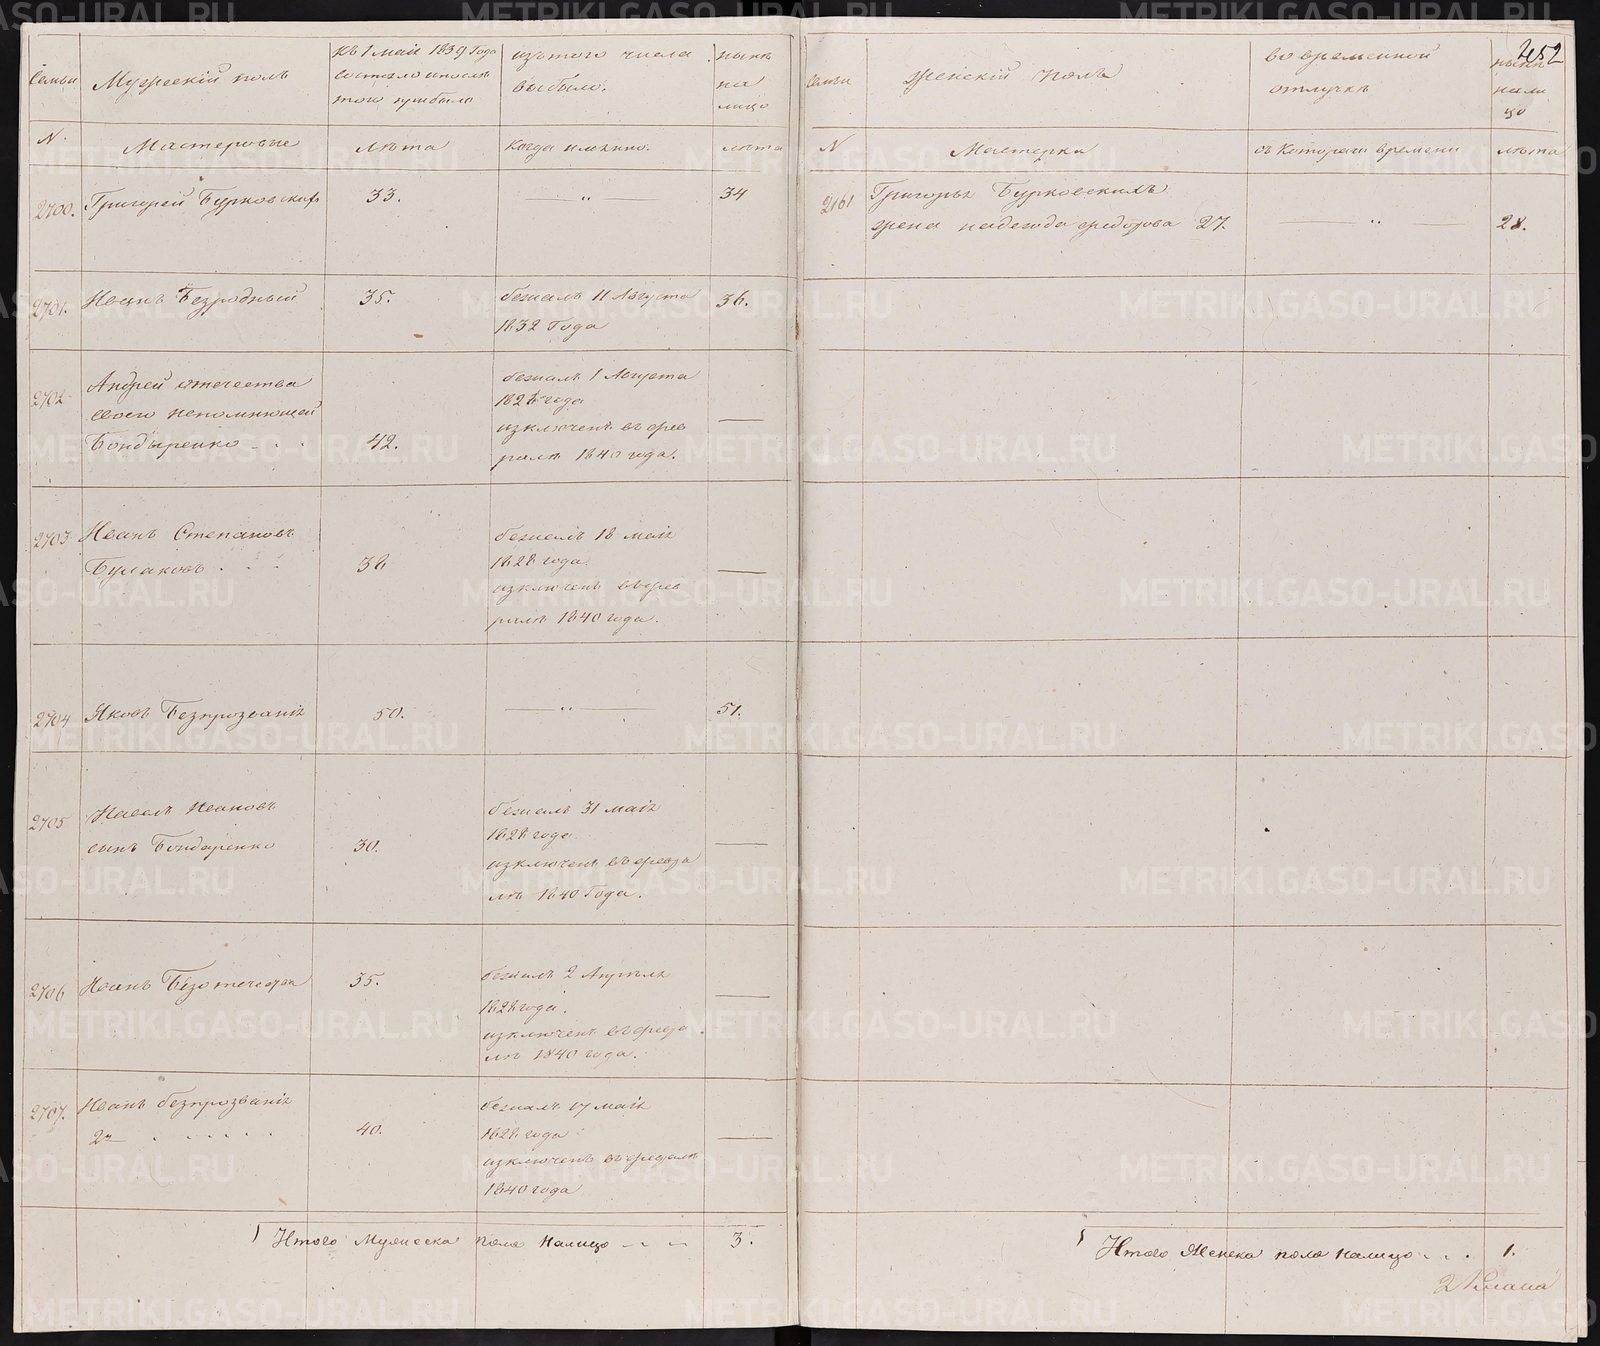 452
Семьи
Мужескій полъ
Къ 1 маія 1839 Года
состояло и послѣ
того прибыло
изъ того числа
выбыло.
нынѣ
на
лицо
N.
Мастеровые
лѣта
Когда имянно.
лѣта
2700. Григорей Бурковскихъ 33. — „ — 34
2701. Иванъ Безродный 35. бежалъ 11 Августа 36.
1832 Года
2702 Андрей отечества
своего непомнющей
Бондыренко 42.
бежалъ 1 Августа
1828 года
изключенъ въ фев
ралѣ 1840 года. —
2703 Иванъ Степановъ
Булаковъ . . . 38
бежалъ 18 маія
1828 года
изключенъ въ фев
ралѣ 1840 года. —
2704 Яковъ Безпрозванія 50. — „ — 51.
2705 Павелъ Ивановъ
сынъ Бондаренко 30.
бежалъ 31 маія
1828 года
изключенъ въ февра
лѣ 1840 Года. —
2706 Иванъ Безотечества 35.
бежалъ 2 Апрѣля
1828 года.
изключенъ въ февра
лѣ 1840 года. —
2707. Иванъ безпрозванія
2й . . . . . . 40.
бежалъ 17 маія
1828 года
изключенъ въ февралѣ
1840 года —
Итого Мужеска пола налицо 3.
семьи
женскій полъ
во временной
отлучкѣ
нынѣ
нали
цо
N
Мастерки
съ Котораго времени
лѣта
2161 Григорья Бурковскихъ
жена надежда федорова 27. — „ — 28.
Итого Женска пола налицо . . . 1.
METRIKI.GASO-URAL.RU